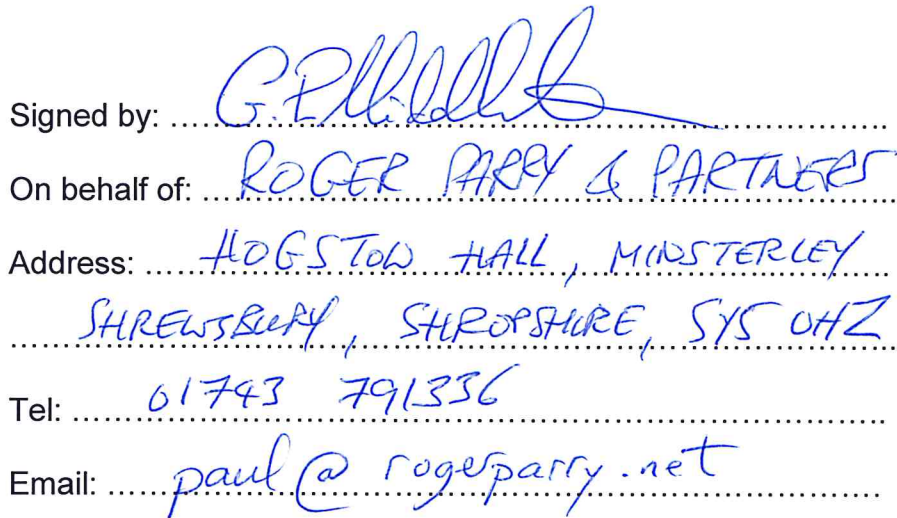 Signed by: G.P.
On behalf of: ROGER PARRY & PARTNERS
Address: HOGSTOW HALL, MINSTERLEY
SHREWSBURY, SHROPSHIRE, SY5 0HZ
Tel: 01743 791336
Email: paul@rogerparry.net